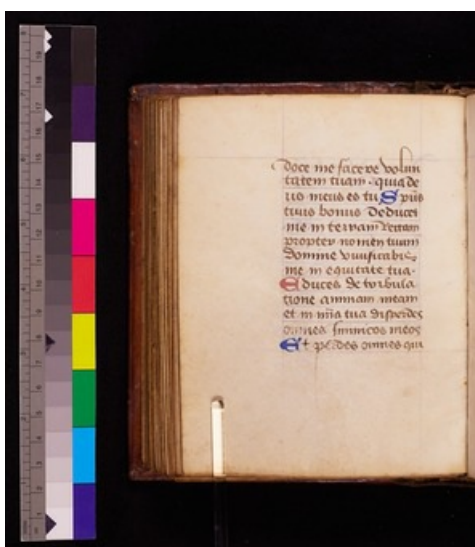 doce me facere volun
tatem tuam · quia de
us meus es tu Spūs
tuus bonus deducet
me in terram rectam
propter nomen tuum
domine vivificabis
me in equitate tua ·
Educes de tribula
tione animam meam
et in mīa tua disperdes
omnes inimicos meos
Et perdes omnes qui